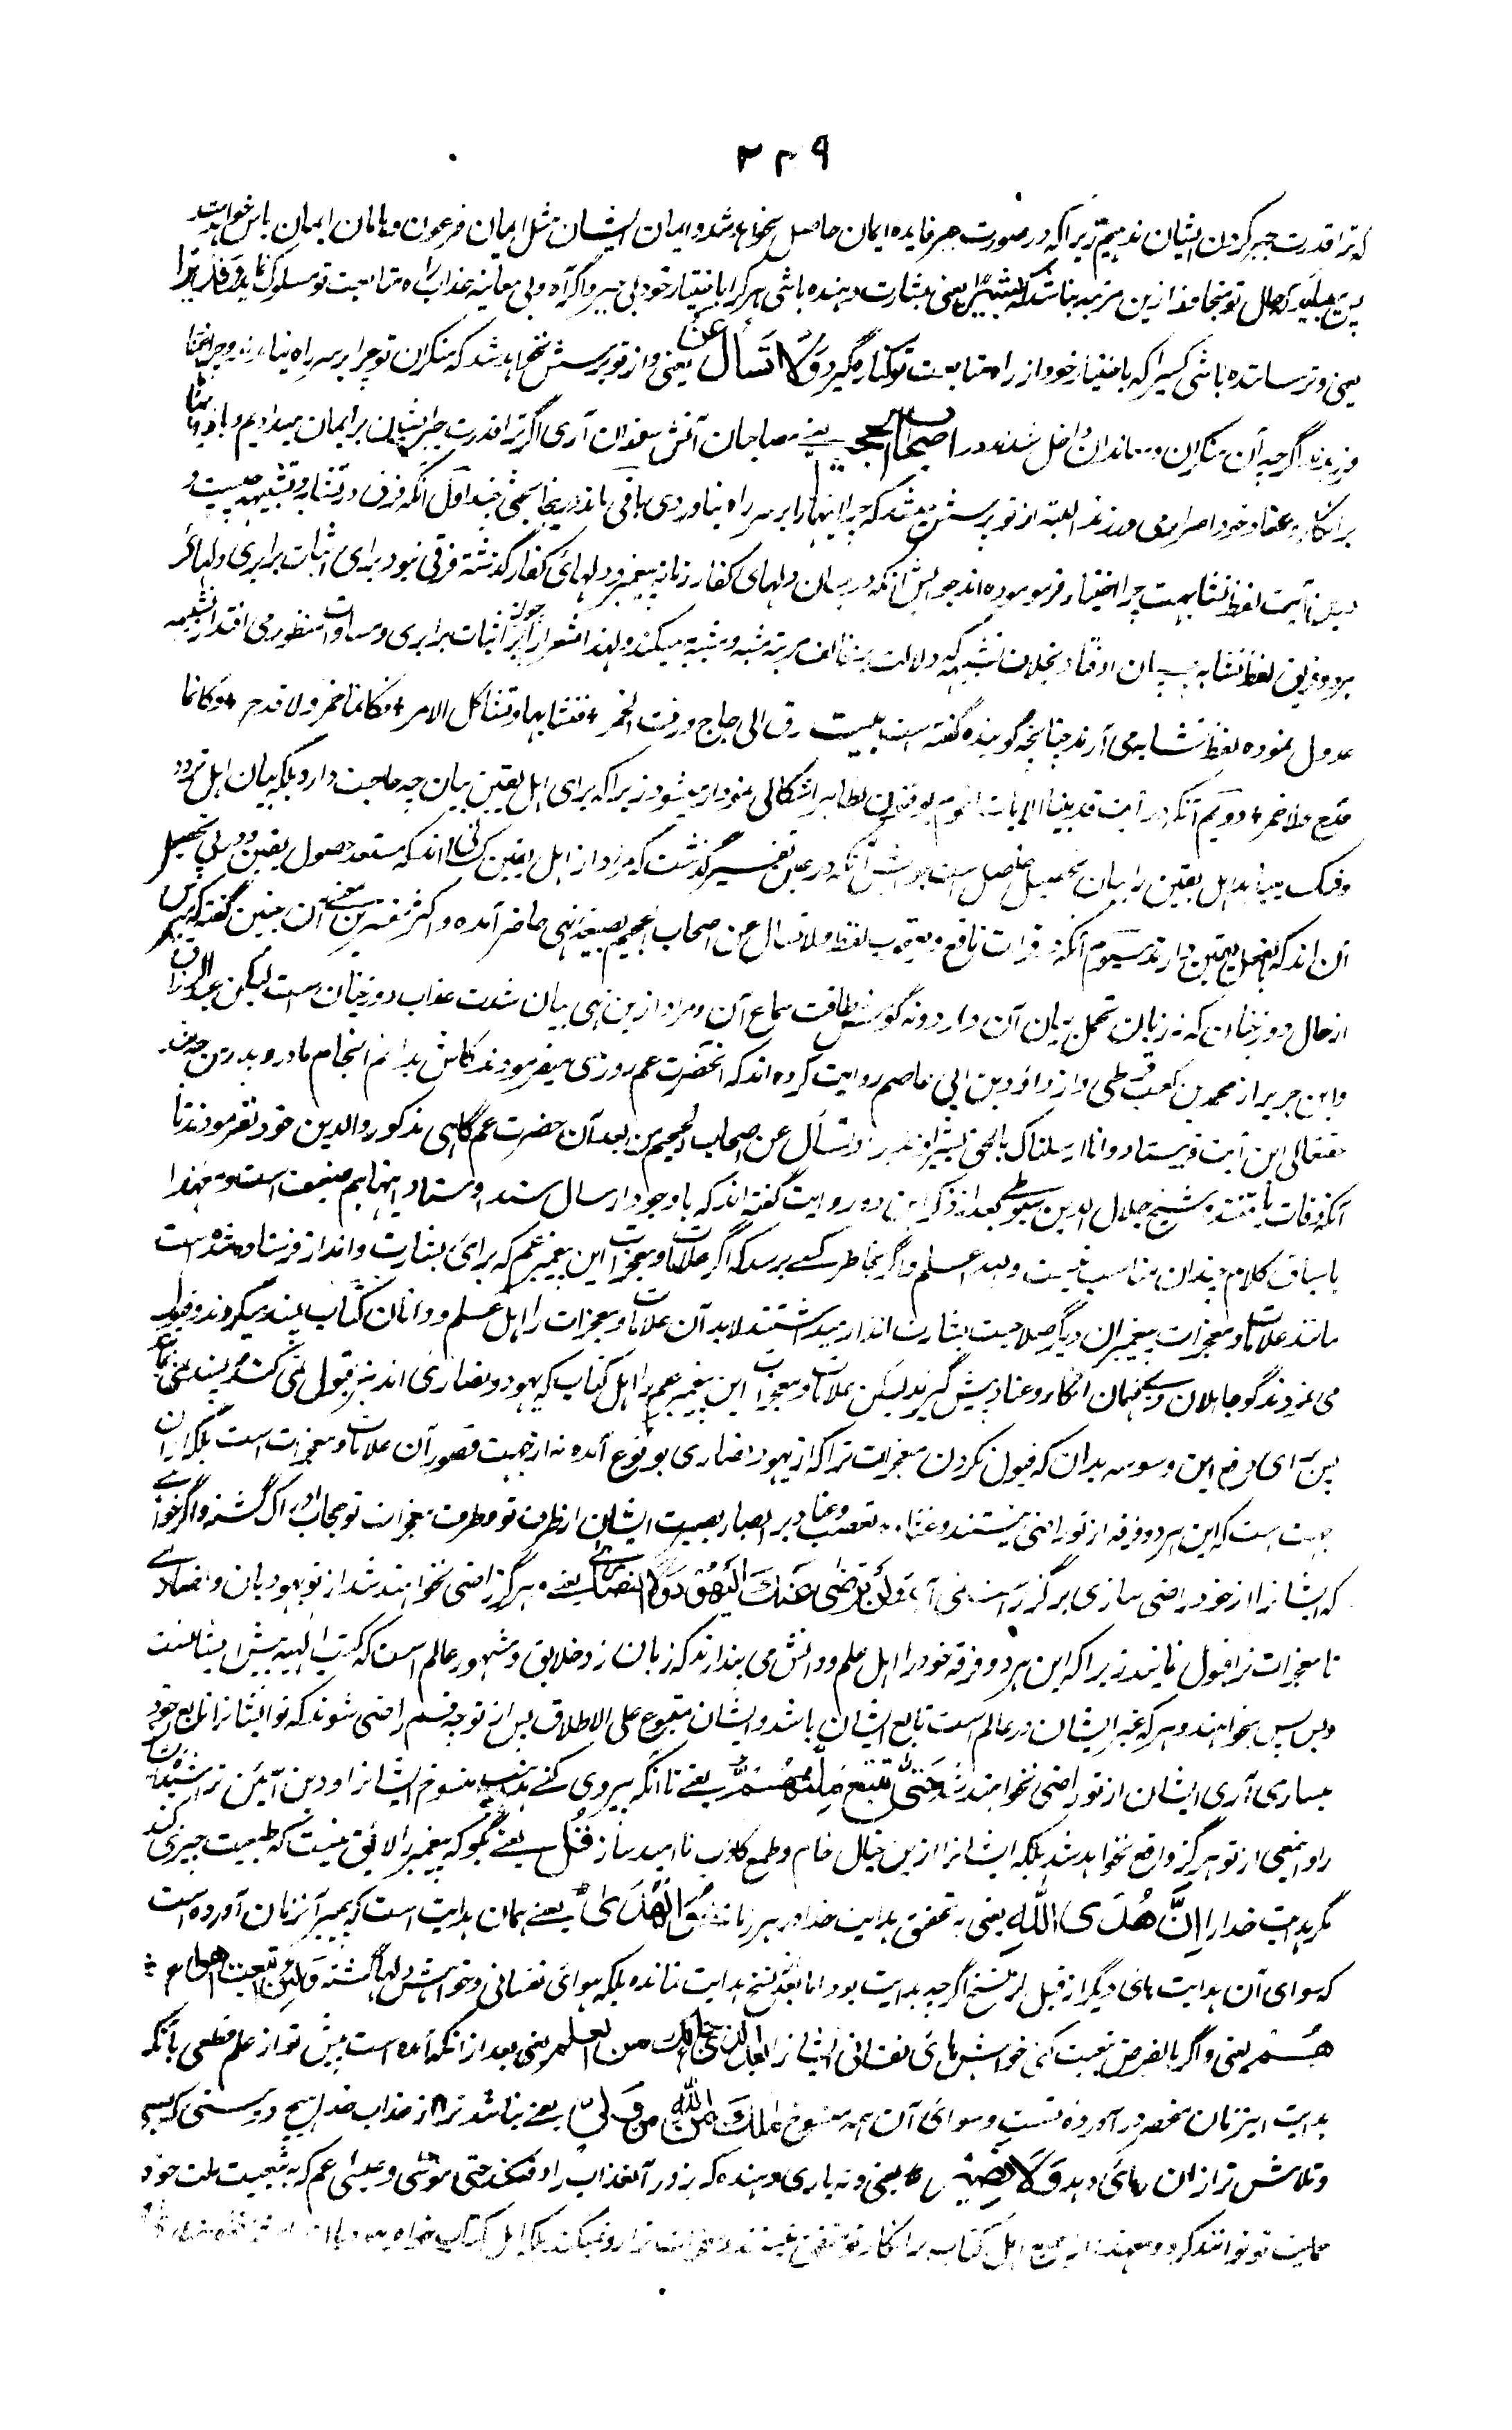 ۴۳۹
که ترا قدرت جبر کردن ایشان ندهیم زیرا که در صورت جبر فایده ایمان حاصل نخواهد شد و ایمان ایشان مثل ایمان فرعون و هامان ایمان باس خواهد
پس حال تو متجاوز ازین مرتبه نباشد که بشیرا یعنی بشارت دهنده باشی هر کرا باختیار خود بی جبر و اکراه و بی معاینه عذاب راه متابعت تو سلوک نماید و نذیرا
یعنی و ترساننده باشی کسیرا که باختیار خود از راه متابعت تو کناره گیرد وَلَا تُسْأَلُ عَنْ یعنی و از تو پرسش نخواهد شد که منکران تو چرا بر سر راه نیامدند و چرا
ورزیدند اگرچه آن منکران و معاندان داخل شدند در اصحاب الجحیم یعنے مصاحبان آتش سوزان آری اگر ترا قدرت جبر ایشان بر ایمان میدادیم و باز
بر انکار و عناد خود اصرار می ورزیدند البته از تو پرسش میشد که چرا اینها را بر سر راه نیاوردی باقی ماند درینجا بحثی چند اول آنکه فرق در تشابه و تشبیه چیست و
درین آیت لفظ تشابهت چرا اختیار فرموده اند جوابش آنکه درمیان دلهای کفار زمانه پیغمبر و دلهائ کفار گذشته فرقی نبود برای اثبات برابری دلهائ
هر دو فریق لفظ تشابه چسپان افتاد بخلاف تشبیه که دلالت بر تخالف مرتبه مشبه و مشبه به میکند و لهذا شعرا را چون اثبات برابری و مساوات منظور می افتد از تشبیه
عدول نموده لفظ تشابه می آرند چنانچه گوینده گفته است بیت رق الزجاج ورقت الخمر + فتشابها وتشاکل الامر + فکانما خمر ولا قدح + وکانما
قدح ولا خمر + دویم آنکه در آیت قد بینا الایات لقوم یوقنون بظاهر اشکالی نمودار میشود زیرا که برای اهل یقین بیان چه حاجت دارد بلکه بیان اهل تردد
و شک میباید اهل یقین را بیان تحصیل حاصل است جوابش آنکه در عین تفسیر گذشت که مراد از اهل یقین کسانی اند که مستعد حصول یقین و در پی تحصیل
آن اند که بالفعل یقین دارند سیوم آنکه در قرات نافع و یعقوب لفظ ولا تسال عن اصحاب الجحیم بصیغه نهی حاضر آمده و اکثر مفسرین معنے آن چنین گفته که مپرس
از حال دوزخیان که نه زبان تحمل بیان آن دارد و نه گوش طاقت سماع آن و مراد ازین نهی بیان شدت عذاب دوزخیان است لیکن عبدالرزاق
و ابن جریر از محمد بن کعب قرظی و از داؤد بن ابی عاصم روایت کرده اند که آنحضرت عم روزی میفرمودند کاش بدانم انجام مادر و پدر من چه شد
حقتعالی این آیت فرستاد و انا ارسلناک بالحق بشیرا و نذیرا ولا تسأل عن اصحاب الجحیم پس بعد آن حضرت عم گاهی مذکور والدین خود نفرمودند تا
آنکه وفات یافتند و شیخ جلال الدین سیوطی بعد از ذکر این دو روایت گفته اند که باوجود ارسال سند و اسناد اینها هم ضعیف است و معهذا
با سیاق کلام چندان مناسب نیست والله اعلم و اگر بخاطر کسے برسد که اگر علامات و معجزات این پیغمبر عم که برائ بشارت و انذار فرستاده شده است
مانند علامات و معجزات پیغمبران دیگر صلاحیت بشارت و انذار میداشتند لابد آن علامات و معجزات را اهل علم و دانایان کتاب پسند میکردند و قبول
می نمودند گو جاهلان و بے فهمان انکار و عناد پیش گیرند لیکن علامات و معجزات این پیغمبر عم را اهل کتاب که یهود و نصاری اند نیز قبول نمی کنند و پسند نمی نمایند
پس برای دفع این وسوسه بدان که قبول نکردن معجزات ترا که از یهود و نصاری بوقوع آمده نه از جهت قصور آن علامات و معجزات است بلکه از آن
جهت است که این هر دو فرقه از تو راضی نیستند و غشاوه تعصب و عناد بر ابصار بصیرت ایشان از طرف تو و طرف معجزات تو حجاب ادراک گشته و اگر خواهے
که ایشانرا از خود راضی سازی هرگز راست نمی آید وَلَنْ تَرْضَىٰ عَنْكَ الْيَهُودُ وَلَا النَّصَارَىٰ یعنے و هرگز راضی نخواهند شد از تو یهودیان و نصاری
تا معجزات ترا قبول نمایند زیرا که این هر دو فرقه خود را اهل علم و دانش می پندارند که زبان زد خلایق و مشهور عالم است که کتب الهیه پیش ایشانست
و بس پس میخواهند و هر که غیر ایشان در عالم است تابع ایشان باشد و ایشان متبوع علی الاطلاق پس از تو چه قسم راضی شوند که تو ایشانرا تابع خود
میسازی آری ایشان از تو راضی نخواهند شد حَتَّىٰ تَتَّبِعَ مِلَّتَهُمْ یعنے تا آنکه پیروی کنے مذهب منسوخ ایشانرا و دین آئین تراشیده ایشان
را و اینمعنی از تو هرگز واقع نخواهد شد بلکه ایشانرا ازین خیال خام و طمع کاذب ناامید ساز قُلْ یعنے بگو که پیغمبر را لایق نیست که تبعیت چیزی کند
مگر هدایت خدا را إِنَّ هُدَى اللَّهِ یعنی به تحقیق هدایت خدا در هر زمانه هُوَ الْهُدَىٰ یعنے همان هدایت است که پیغمبر آنزمان آورده است
که سوای آن هدایت های دیگر از قبل نسخ اگرچه هدایت بود اما بعد نسخ هدایت نمانده بلکه هوائ نفسانی و خواهش دلها گشته وَلَئِنِ اتَّبَعْتَ أَهْوَاءَ
هُمْ یعنی و اگر بالفرض تبعیت کنی خواهش های نفسانی ایشانرا بعد الذی جاءک من العلم یعنی بعد از آنکه آمده است پیش تو از علم قطعی بآنکه
هدایت اینزمان منحصر در آورده تست و سوائ آن همه منسوخ مَا لَكَ مِنَ اللَّهِ مِنْ وَلِيٍّ یعنے نباشد ترا از عذاب خدا هیچ دوستی که بسعی
و تلاش ترا از ان رهائ دهد وَلَا نَصِيرٍ یعنی و نه یاری دهنده که بزور آنعذاب را دفع کند حتی موسی و عیسی عم که به تبعیت ملت خود
حمایت تو توانند کرد و معهذا از جمیع اهل کتاب بر انکار تو متفق نیستند و معجزات ترا رد نمیکنند بلکه اهل کتاب خواه یهودیان